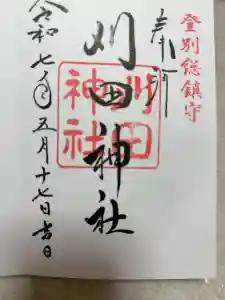 登別総鎮守
奉拝
刈田神社
刈田神社
令和七年五月十七日吉日